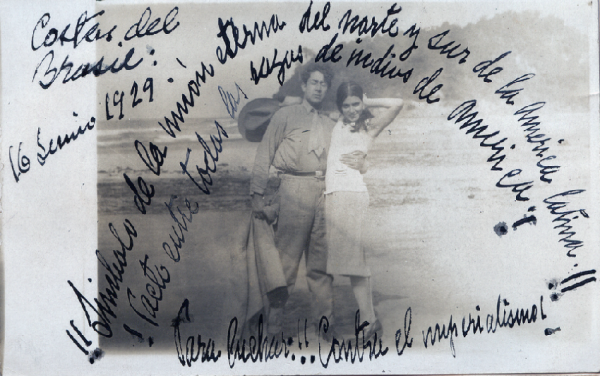 Costas del
Brasil.
16 Junio 1929.
!!Simbolo de la unión eterna del norte y sur de la america latina.!!
! Pacto entre todas las razas de indios de america.!
Para luchar!!! Contra el imperialismo!